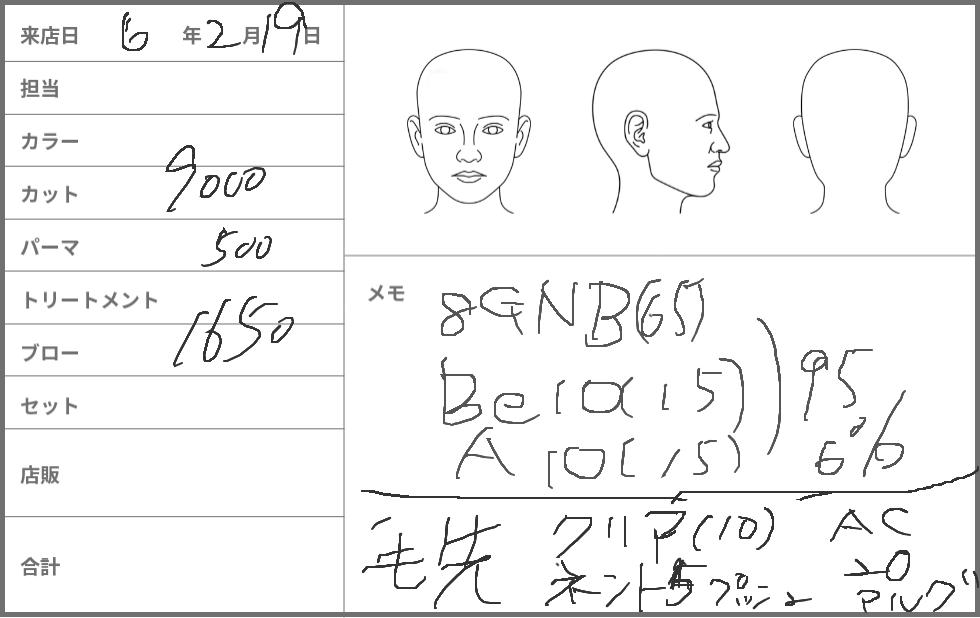 来店日 6 年 2 月 19 日
担当
カラー
カット 9000
パーマ 500
トリートメント
ブロー 1650
セット
店販
合計
メモ
8GNB(65)
Be10(15) 95
A10(15) 6%
毛先 クリア(10) AC
5プッシュ 20
アルグ